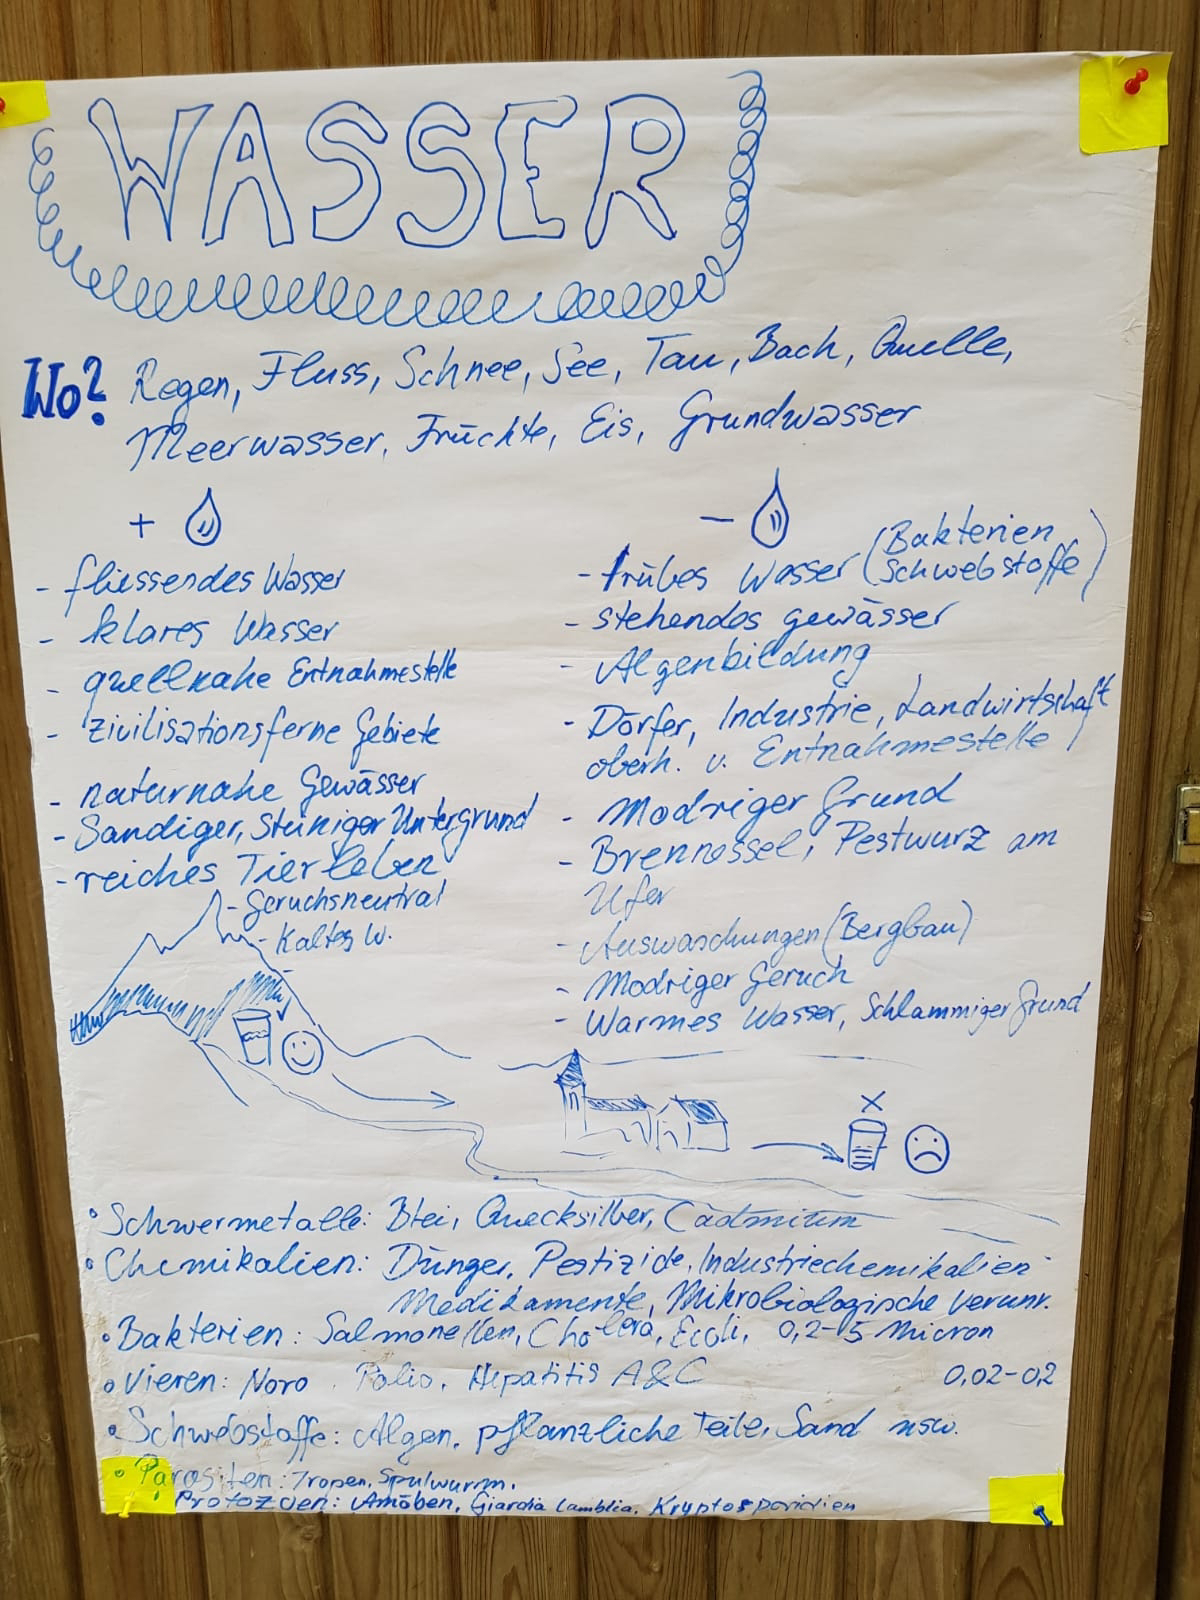 WASSER
Wo? Regen, Fluss, Schnee, See, Tau, Bach, Quelle,
Meerwasser, Früchte, Eis, Grundwasser
+
- fliessendes Wasser
- klares Wasser
- quellnahe Entnahmestelle
- zivilisationsferne Gebiete
- naturnahe Gewässer
- Sandiger, Steiniger Untergrund
- reiches Tierleben
- Geruchsneutral
- Kaltes W.
-
- trübes Wasser (Bakterien
Schwebstoffe)
- stehendes gewässer
- Algenbildung
- Dörfer, Industrie, Landwirtschaft
oberh. v. Entnahmestelle
- Modriger Grund
- Brennessel, Pestwurz am
Ufer
- Auswaschungen (Bergbau)
- Modriger Geruch
- Warmes Wasser, Schlammiger Grund
• Schwermetalle: Blei, Quecksilber, Cadmium
• Chemikalien: Dünger, Pestizide, Industriechemikalien
Medikamente, Mikrobiologische Verunr.
• Bakterien: Salmonellen, Cholera, Ecoli, 0,2-5 Micron
• Vieren: Noro, Polio, Hepatitis A&C 0,02-0,2
• Schwebstoffe: Algen, pflanzliche Teile, Sand usw.
• Parasiten: Tropen, Spulwurm,
Protozoen: Amöben, Giardia Lamblia, Kryptosporidien